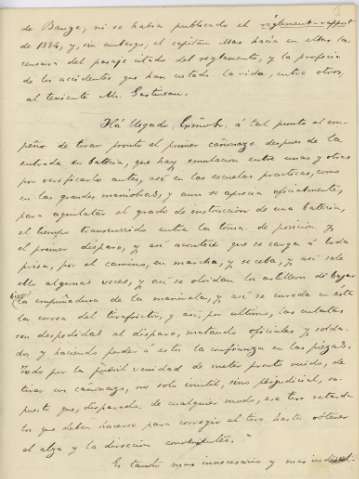 de Bange, ni se habia publicado el réglement-rapport
de 1884, y, sin embargo, el capitan Moe hacia en ellos la
censura del pasaje citado del reglamento, y la profecia
de los accidentes que han costado la vida, entre otros,
al teniente Mr.
Há llegado, á tal punto el em-
peño de tirar pronto el primer cañonazo despues de la
entrada en batería, que hay emulacion entre unas y otras
por verificarlo antes, así en las escuelas prácticas, como
en las grandes maniobras, y aun se aprecia oficialmente,
para aquilatar el grado de instruccion de una batería,
el tiempo transcurrido entre la toma de posicion y
el primer disparo, y así acontece que se carga á toda
prisa, por el camino, en marcha, y se ceba, y así sale
ello algunas veces, y así se olvidan los artilleros de bajar
la empuñadura de la manivela, y así se enreda en ésta
la correa del tirafrictor, y así, por ultimo, las culatas
son despedidas al disparo, matando oficiales y solda-
dos, y haciendo perder á estos la confianza en las piezas.
Todo por la pueril vanidad de meter pronto ruido, de
tirar un cañonazo, no solo inutil, sino perjudicial, su-
puesto que, disparado de cualquier modo, ese tiro retarda
los que deben hacerse para corregir el tiro hasta obtener
el alza y la direccion convenientes."
Es tanto mas innecesario y mas